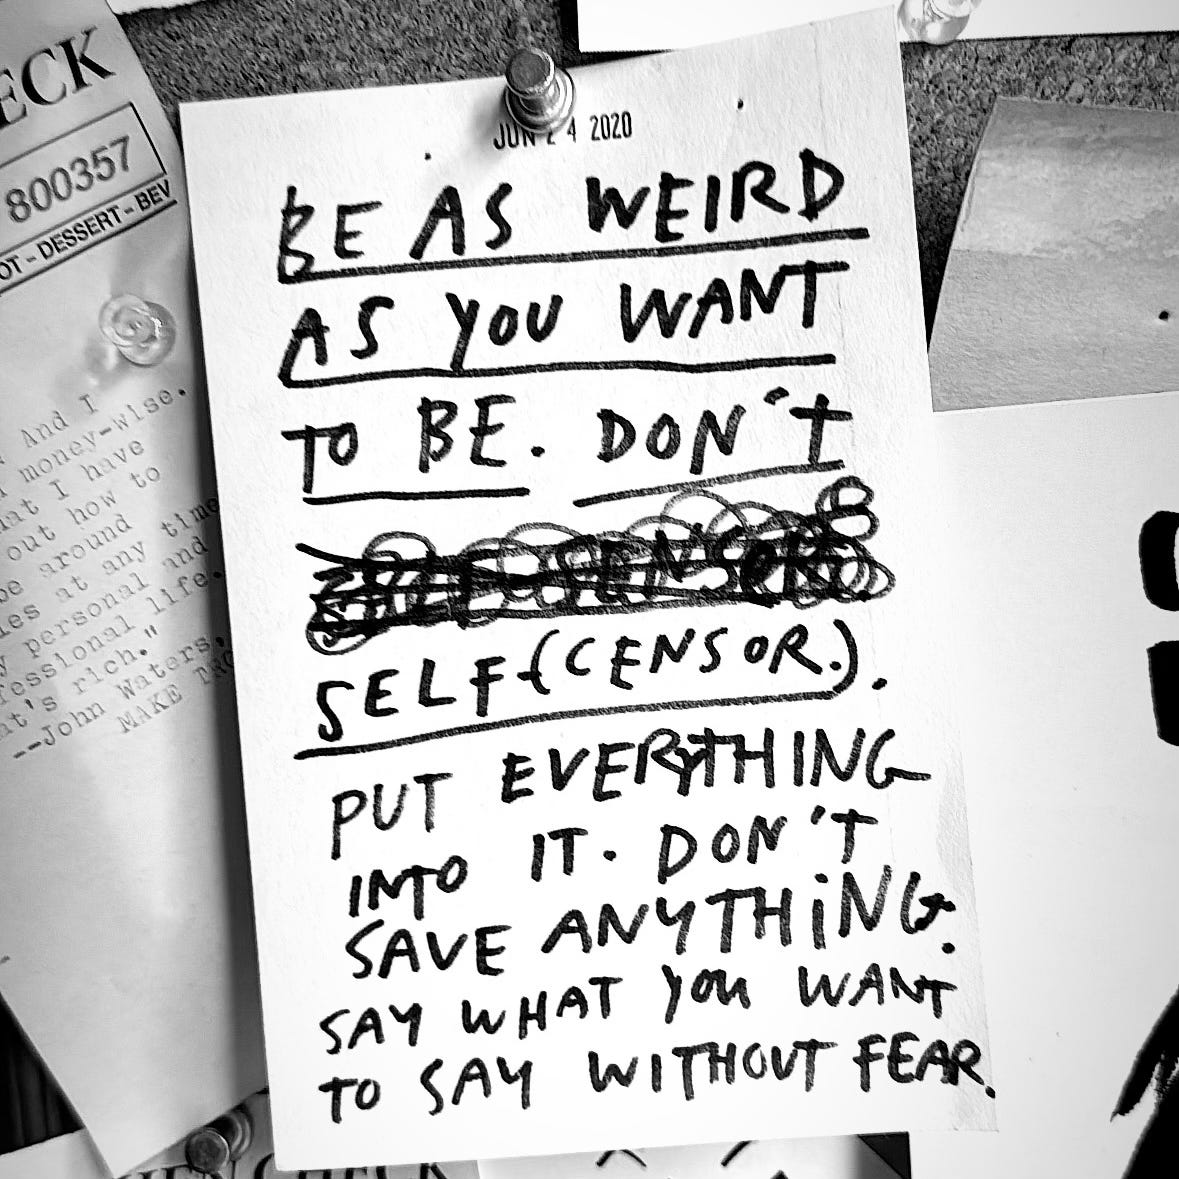 ECK
800357
OT - DESSERT - BEV
And I
money-wise.
at I have
out how to
e around
les at any time
y personal and
fessional life.
at's rich."
--John Waters,
MAKE TRO
JUN 24 2020
BE AS WEIRD
AS YOU WANT
TO BE. DON'T
SELF-(CENSOR.).
PUT EVERYTHING
INTO IT. DON'T
SAVE ANYTHING.
SAY WHAT YOU WANT
TO SAY WITHOUT FEAR.
CHECK